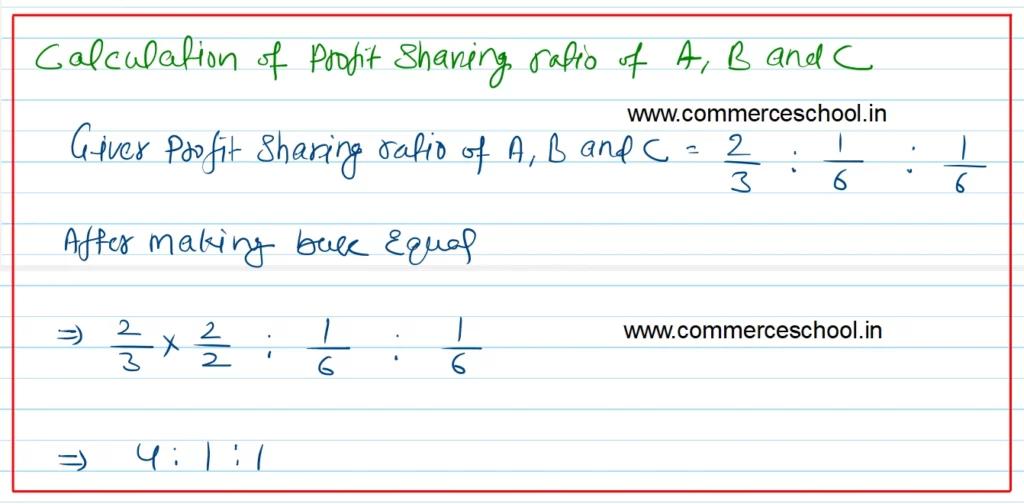 Calculation of Profit Sharing ratio of A, B and C
www.commerceschool.in
Given Profit Sharing ratio of A, B and C = 2/3 : 1/6 : 1/6
After making base Equal
⇒ 2/3 × 2/2 : 1/6 : 1/6
www.commerceschool.in
⇒ 4 : 1 : 1